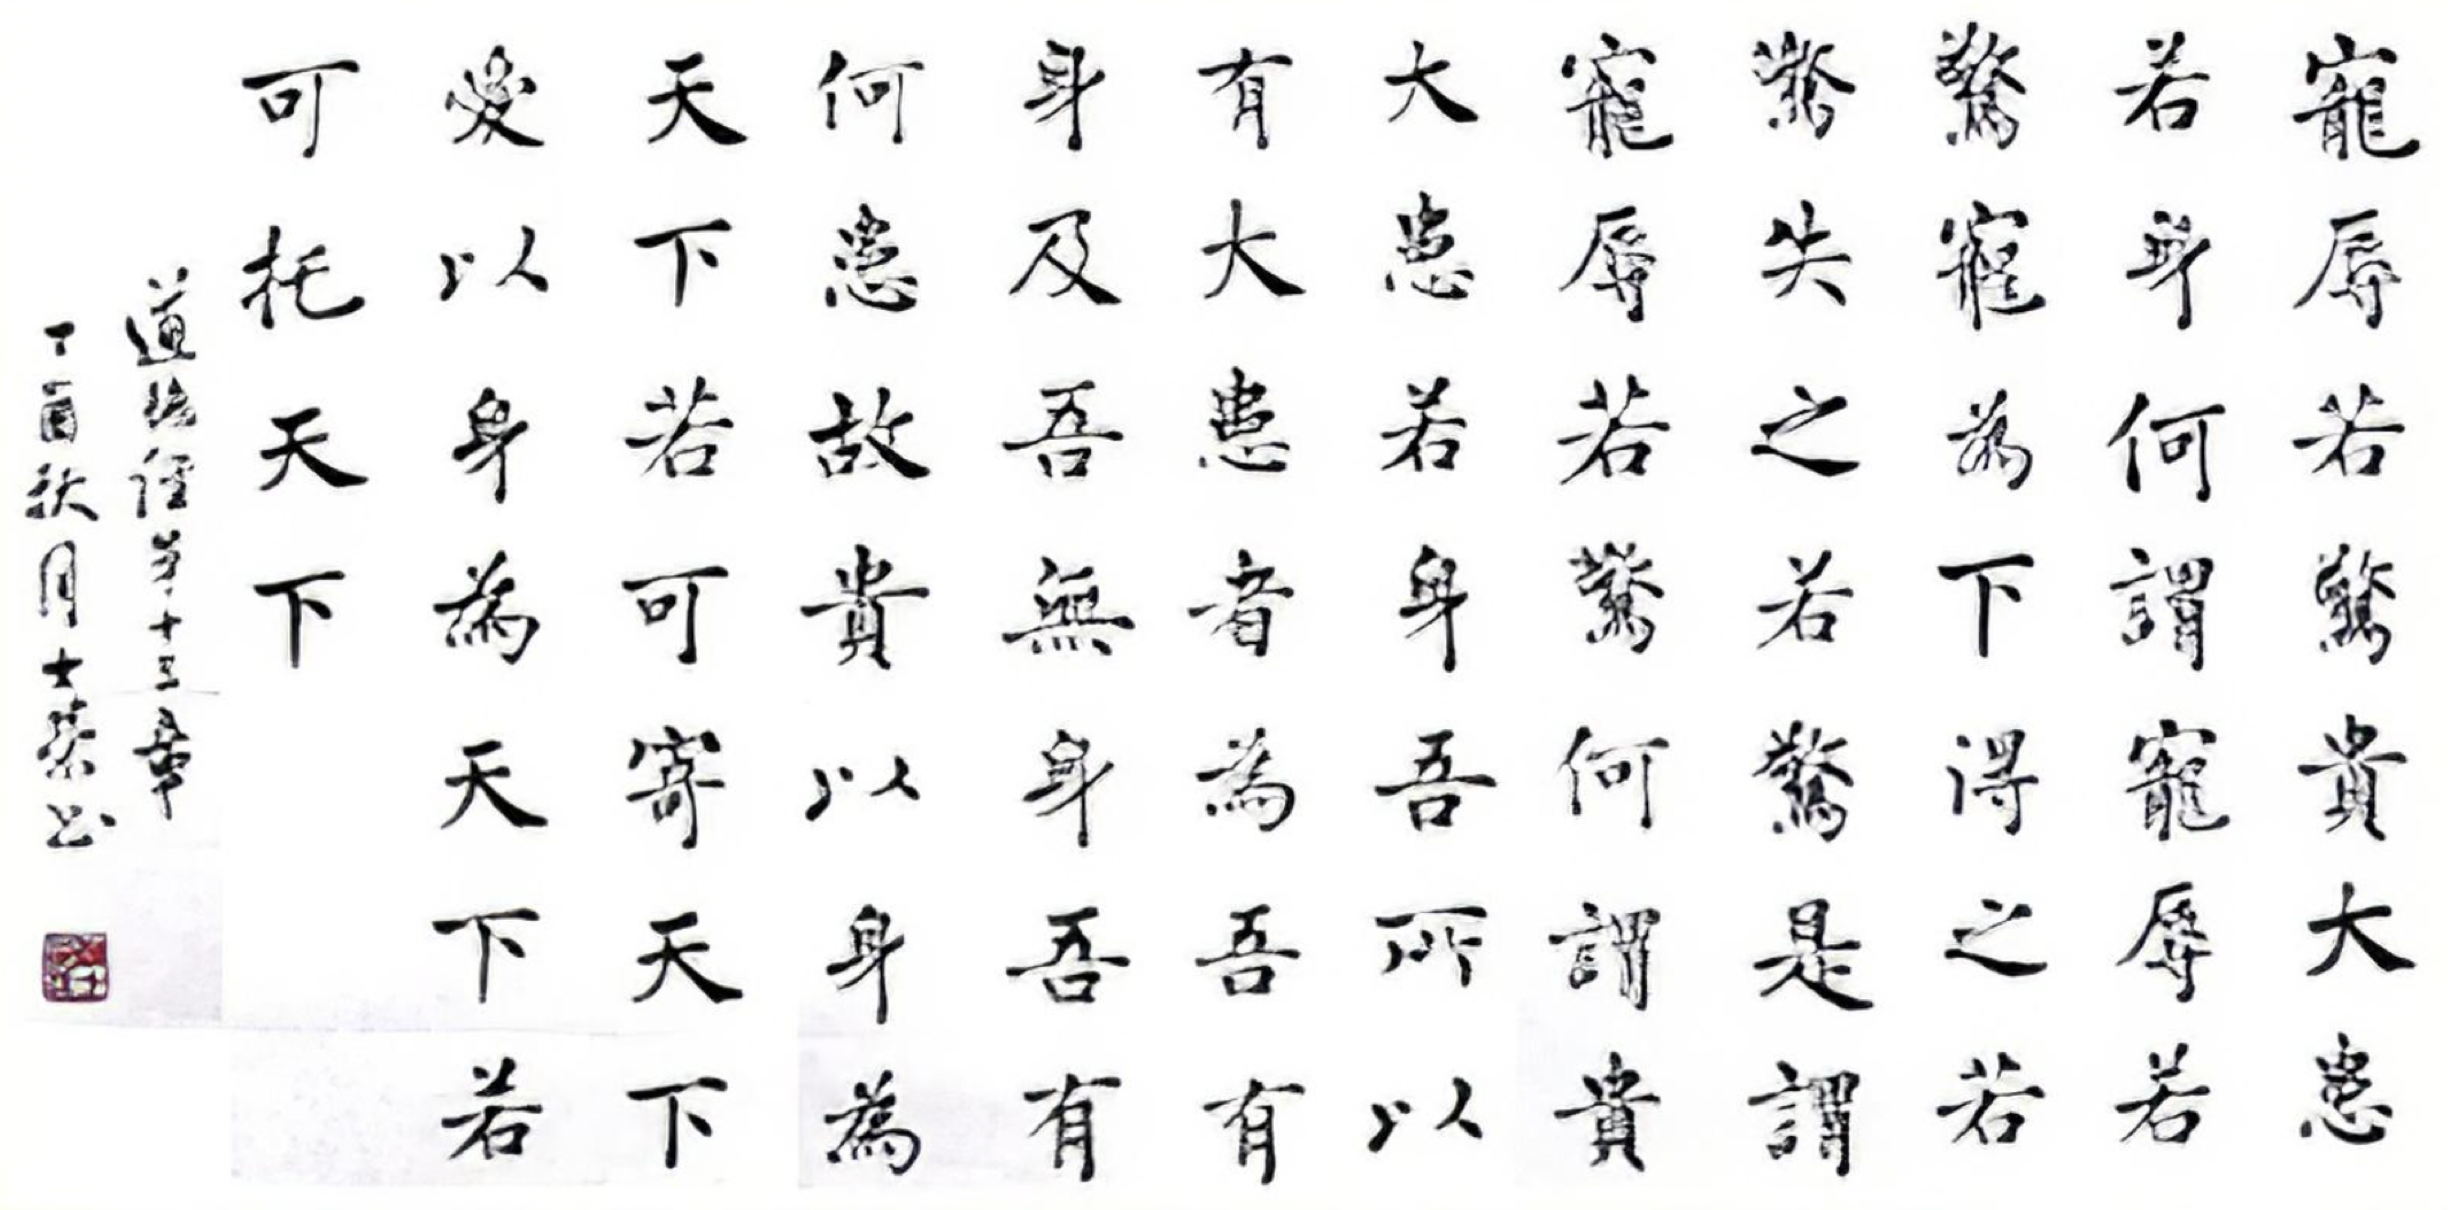 寵辱若驚貴大患
若身何謂寵辱若
驚寵為下得之若
驚失之若驚是謂
寵辱若驚何謂貴
大患若身吾所以
有大患者為吾有
身及吾無身吾有
何患故貴以身為
天下若可寄天下
愛以身為天下若
可托天下
道德經第十三章
丁酉秋月士荣书